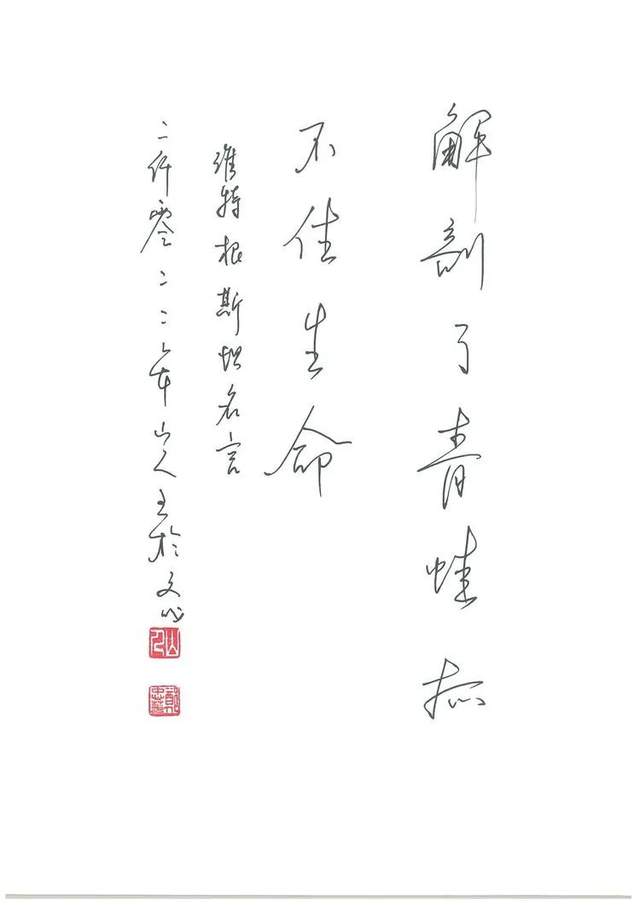 解剖了青蛙抓
不住生命
维特根斯坦名言
二仟零二二年山人於文
山人